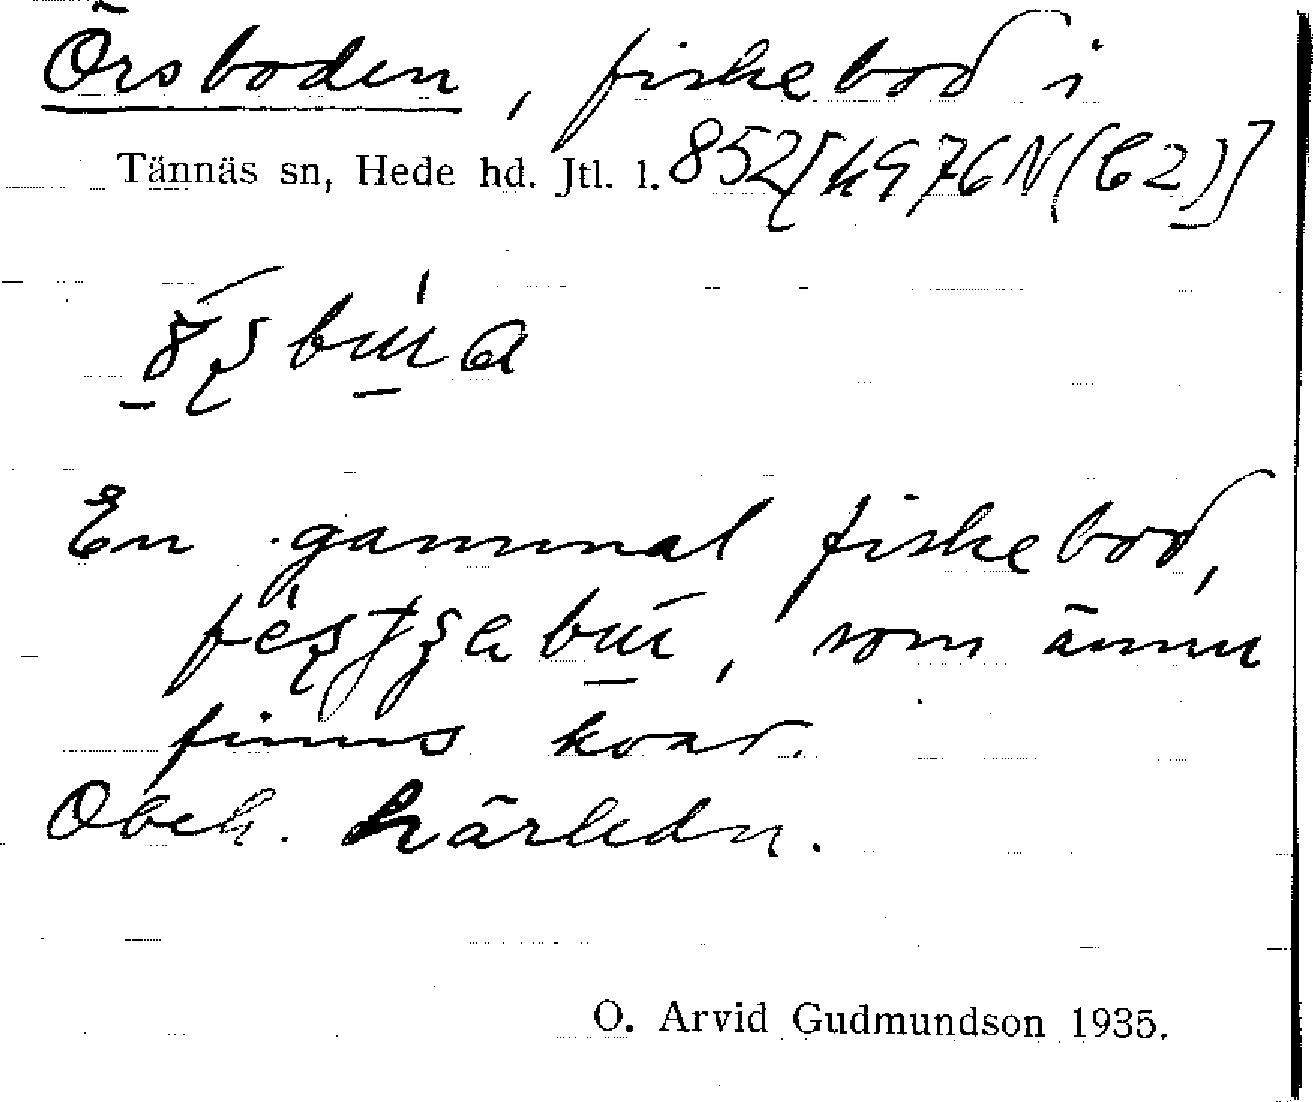 Örsboden, fiskebod i
Tännäs sn, Hede hd. Jtl. l. 852[4976N(C2)]
En gammal fiskebod,
som ännu
finns kvar.
Obek. härledn.
O. Arvid Gudmundson 1935.